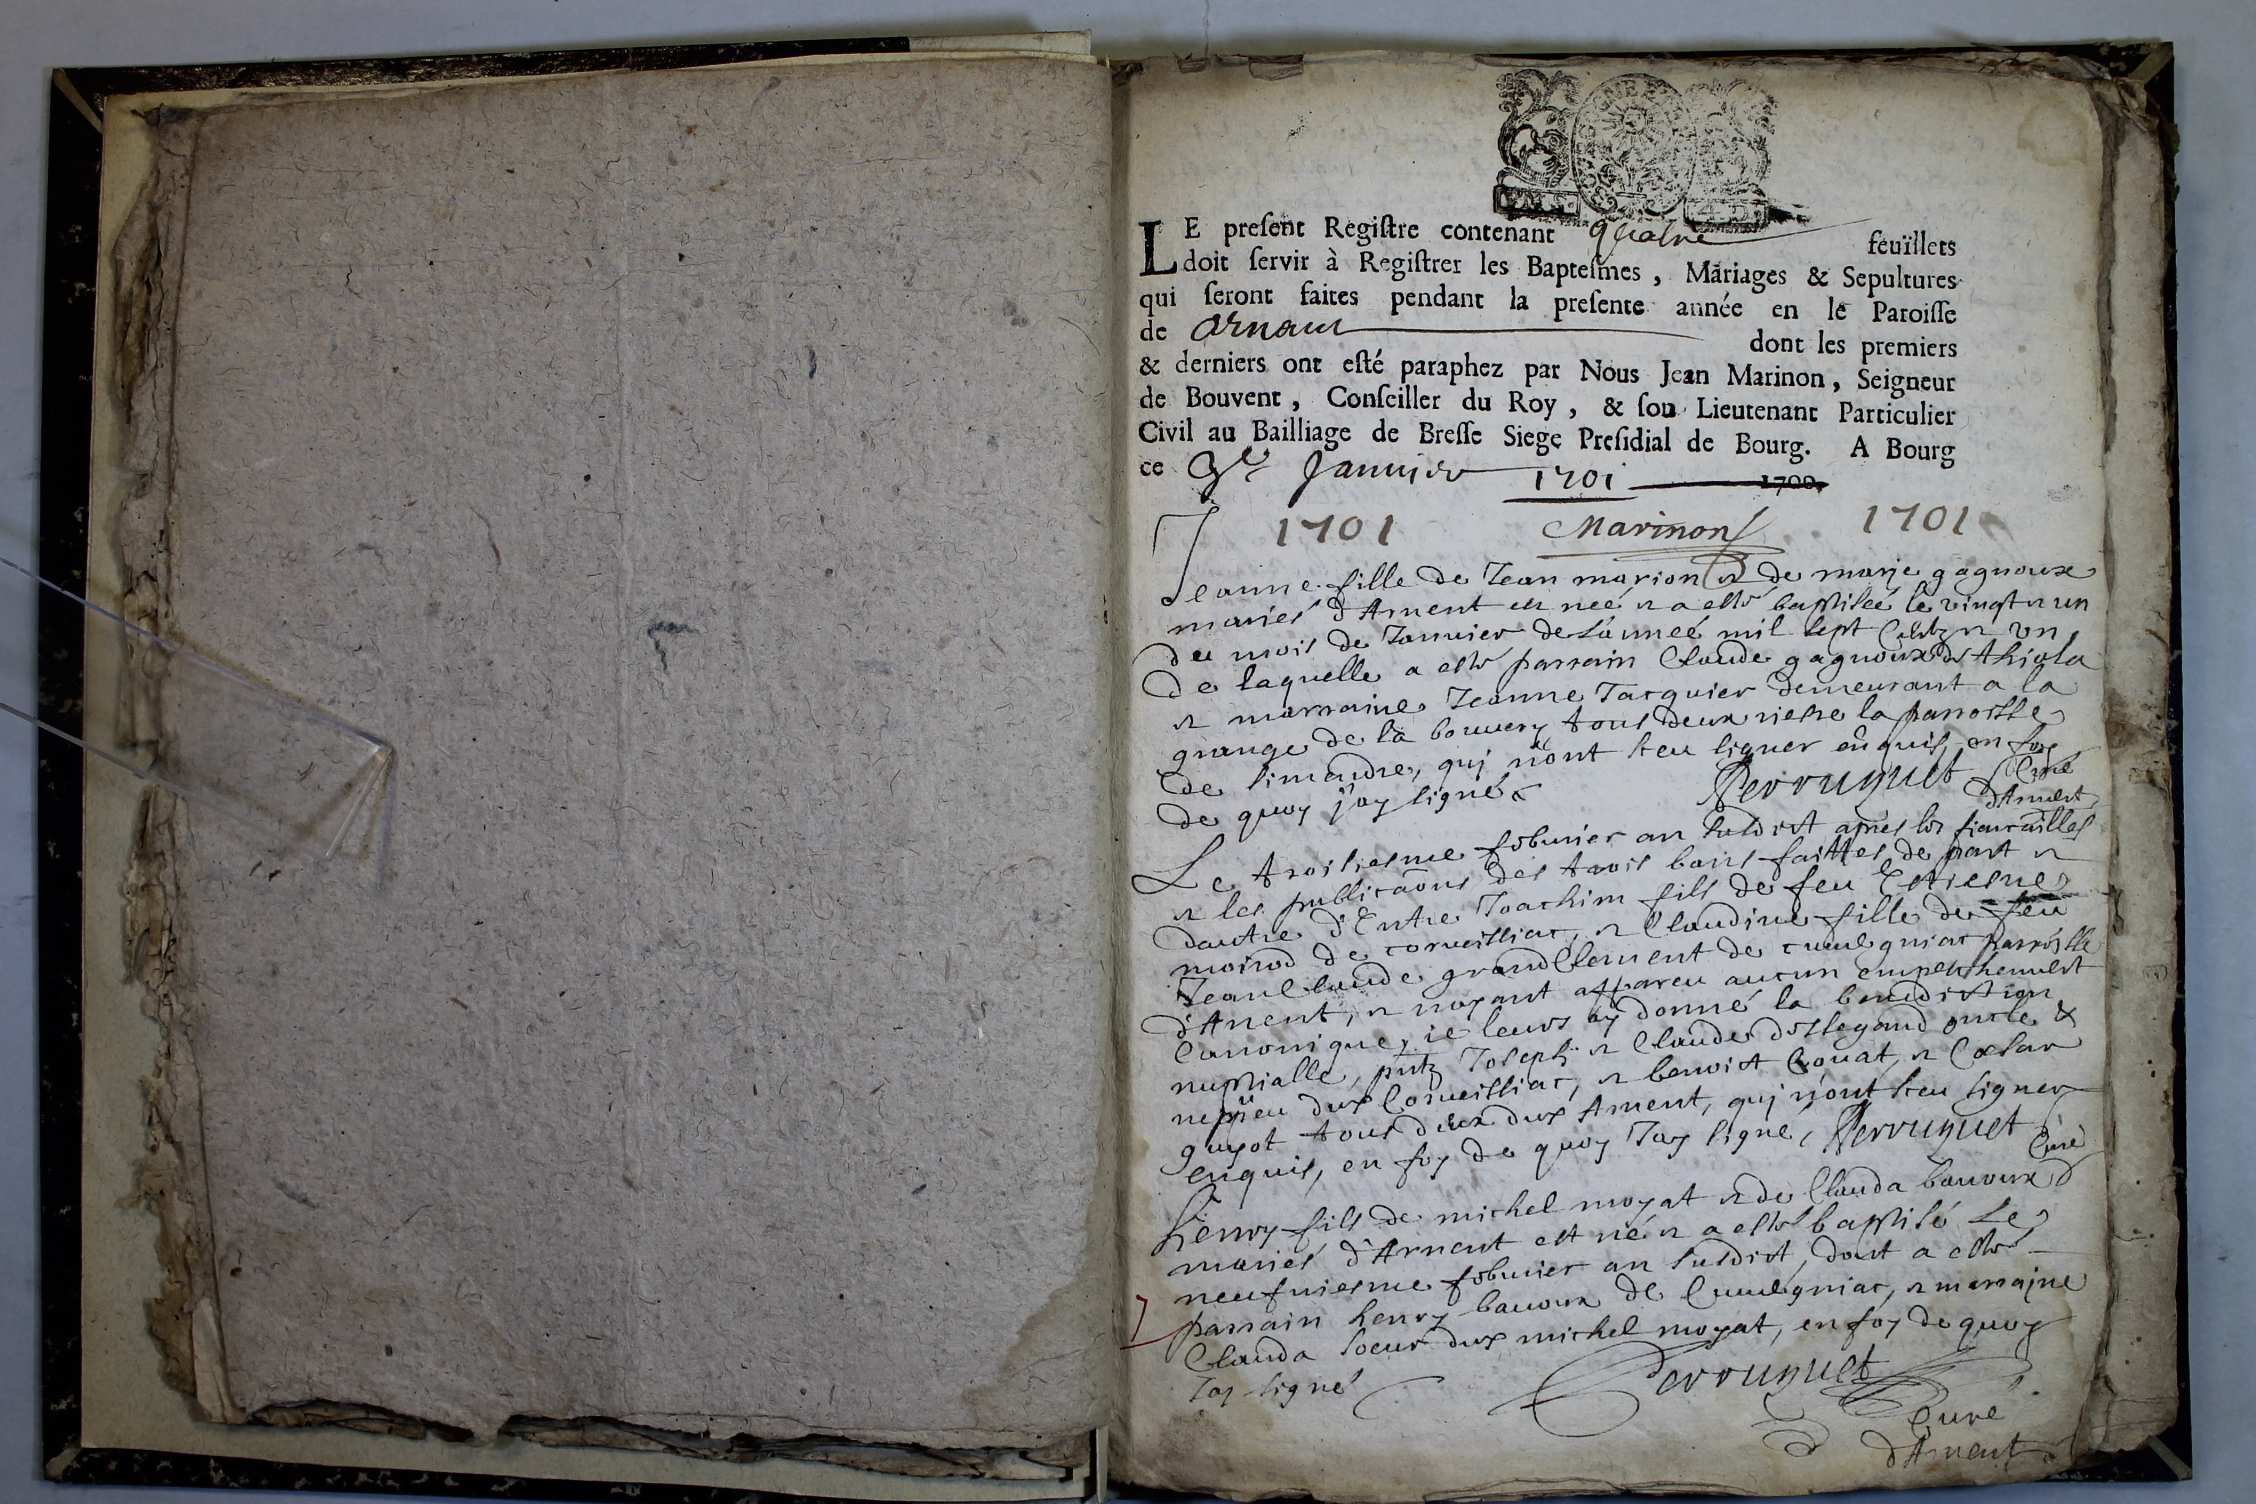 LE preſent Regiſtre contenant quatre feuïllets
doit ſervir à Regiſtrer les Bapteſmes, Mariages & Sepultures
qui ſeront faites pendant la preſente année en le Paroiſſe
de Arnans dont les premiers
& derniers ont eſté paraphez par Nous Jean Marinon, Seigneur
de Bouvent, Conſeiller du Roy, & ſon Lieutenant Particulier
Civil au Bailliage de Breſſe Siege Preſidial de Bourg. A Bourg
ce Janvier 1701 1700.
1701 Marinon 1701
Jeanne fille de Jean marion et de marie gagnoux
mariés d'Arnent est neé et a esté baptiseé le vingt et un
du mois de Januier de l'anneé mil sept Centz et vn,
De laquelle a esté parrain Claude gagnoux
et marraine Jeanne Jacquier demeurant a la
grange de la bouuery tous deux riesre la parroisse
de simandre, qui n'ont sceu signer enquis, en foy
de quoy j'ay signé Perruquet Curé
d'Arnent
Le troisiesme feburier an susdict apres les fiancailles
et les publicaons des trois bans faittes de part et
dautre d'Entre Joachim fils de feu Estiesne
moirod de corueissiac, et Claudine fille de feu
Jean Claude grandClement de cuuegniac parroisse
d'Arnent, et nayant appareu aucun empeschement
Canonique, je leurs ay donné la benediction
nuptialle, pntz Joseph et Claude oncle &
nepueu dud Corueissiac, et benoict Couat, et Cæsar
guyot tous deux dud Arnent, qui n'ont sceu signer
enquis, en foy de quoy Jay signé, Perruquet
Curé
henry fils de michel moyat et de Clauda bauoux
mariés d'Arnent est né et a esté baptisé Le
neufuiesme feburier an susdict, dont a esté
parrain henry bauoux de Cuuegniac, et marraine
Clauda soeur dud michel moyat, en foy de quoy
Jay signé Perruquet
Curé
d'Arnent